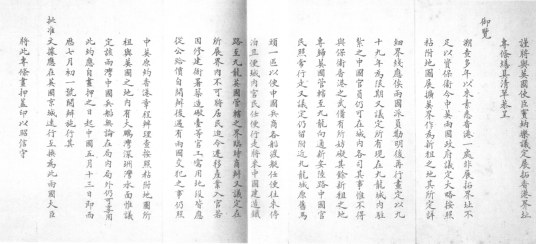 謹將與英國使臣竇納樂議定展拓香港界址
專條繕具清單恭呈
御覽
溯查多年以來素悉香港一處非展拓界址不
足以資保衛今中英兩國政府議定大略按照
粘附地圖展擴英界作為新租之地其所定詳
細界綫應俟兩國派員勘明後再行畫定以九
十九年為限期又議定所有現在九龍城內駐
紮之中國官員仍可在城內各司其事惟不得
與保衛香港之武備有所妨礙其餘新租之地
專歸英國管轄至九龍向通新安陸路中國官
民照常行走又議定仍留附近九龍城原舊馬
頭一區以便中國兵商各船渡艇任便往來停
泊且便城內官民任便行走將來中國建造鐵
路至九龍英國管轄之界臨時商辦又議定在
所展界內不可將居民迫令遷移產業入官若
因修建衙署築造礮臺等官工需用地段皆應
從公給價自開辦後遇有兩國交犯之事仍照
中英原約香港章程辦理查按照粘附地圖所
租與英國之地內有大鵬灣深圳灣水面惟議
定該兩灣中國兵船無論在局內局外仍可享用
此約應自畫押之日起中國五月十三日即西
曆七月初一號開辦施行其
批准文據應在英國京城速行互換為此兩國大臣
將此專條畫押蓋印以昭信守